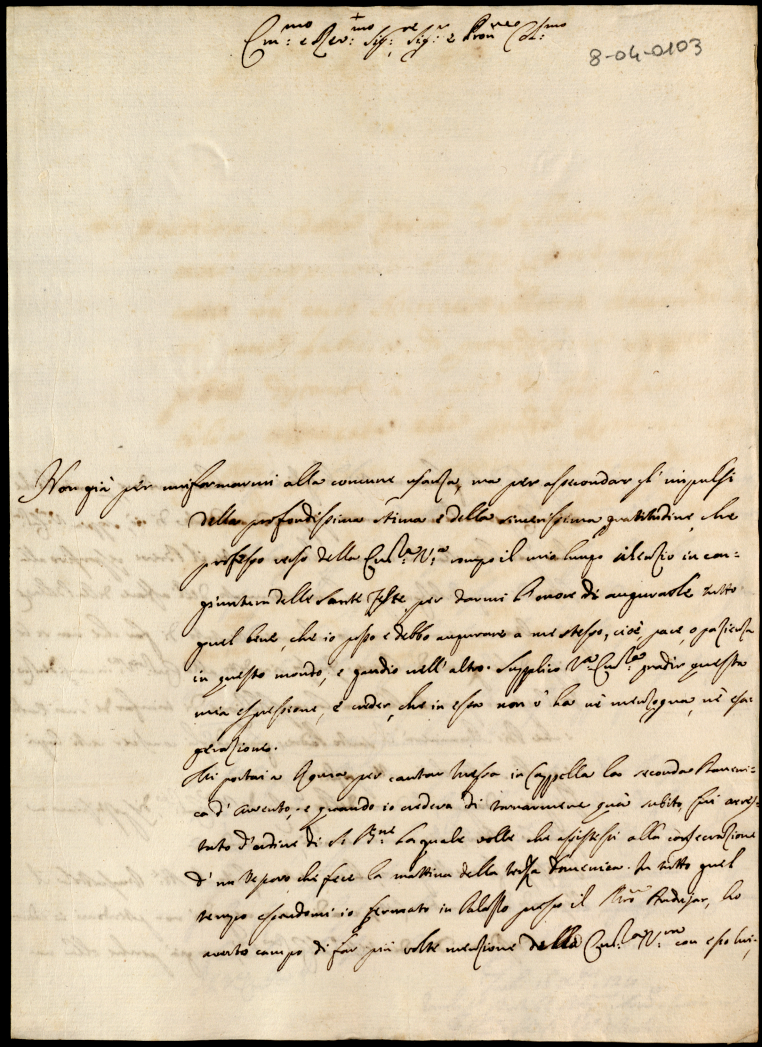 +
Em:mo e Rev:mo Sig:re Sig:r e Pron Col:mo
8-04-0103
Non già per uniformarmi alla comune usanza, ma per assecondar gl'impulsi
della profondissima stima e della sincerissima gratitudine, che
professo verso della Em:za V:ra rompo il mio lungo silenzio in con-
giuntura delle sante Feste per darmi l'onore di augurarle tutto
quel bene, che io posso e debbo augurare a me stesso, cioè pace o pazienza
in questo mondo, e gaudio nell'altro. Supplico V:ra Em:za gradir questa
mia espressione, e creder, che in essa non v'ha nè menzogna, nè esa-
gerazione.
Mi portai a per cantar Messa in Cappella la seconda Domeni-
ca d'Avvento, e quando io credeva di tornarmene quà subito, fui arres-
tato d'ordine di S. B:ne la quale volle che assistessi alla consecrazione
d'un Vescovo che fece la mattina della terza Domenica. In tutto quel
tempo essendomi io fermato in Palazzo presso il Andujar, ho
avuto campo di far più volte menzione della Em:za V:ra con esso lui,